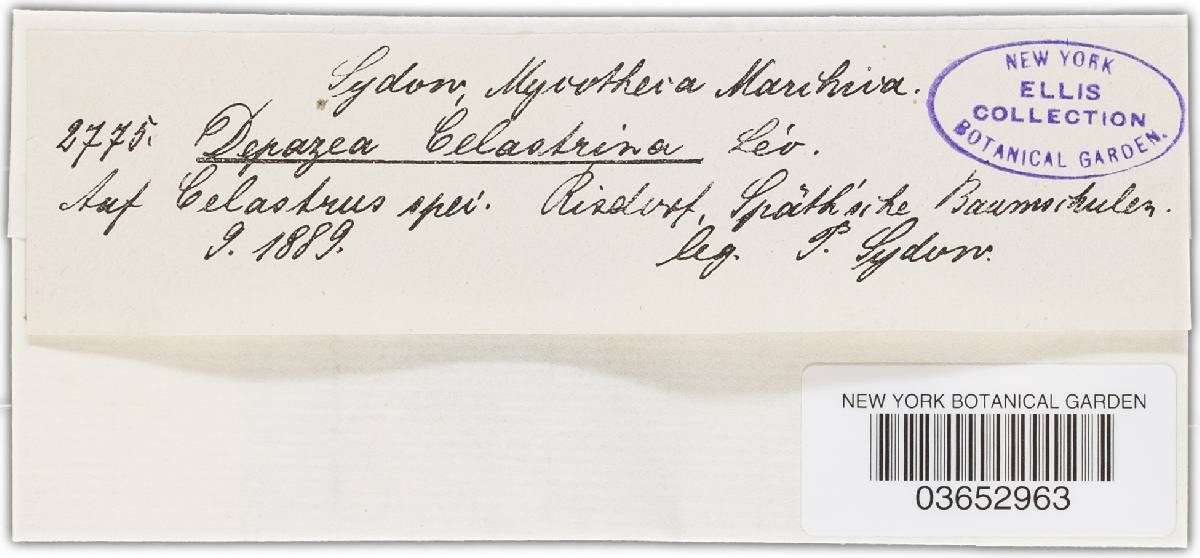 Sydow, Mycotheca Marchica.
2775. Depazea Celastrina Lév.
Auf Celastrus spei. Rixdorf, Späth'sche Baumschulen.
9. 1889. leg. P. Sydow.
NEW YORK
ELLIS
COLLECTION
BOTANICAL GARDEN.
NEW YORK BOTANICAL GARDEN
03652963